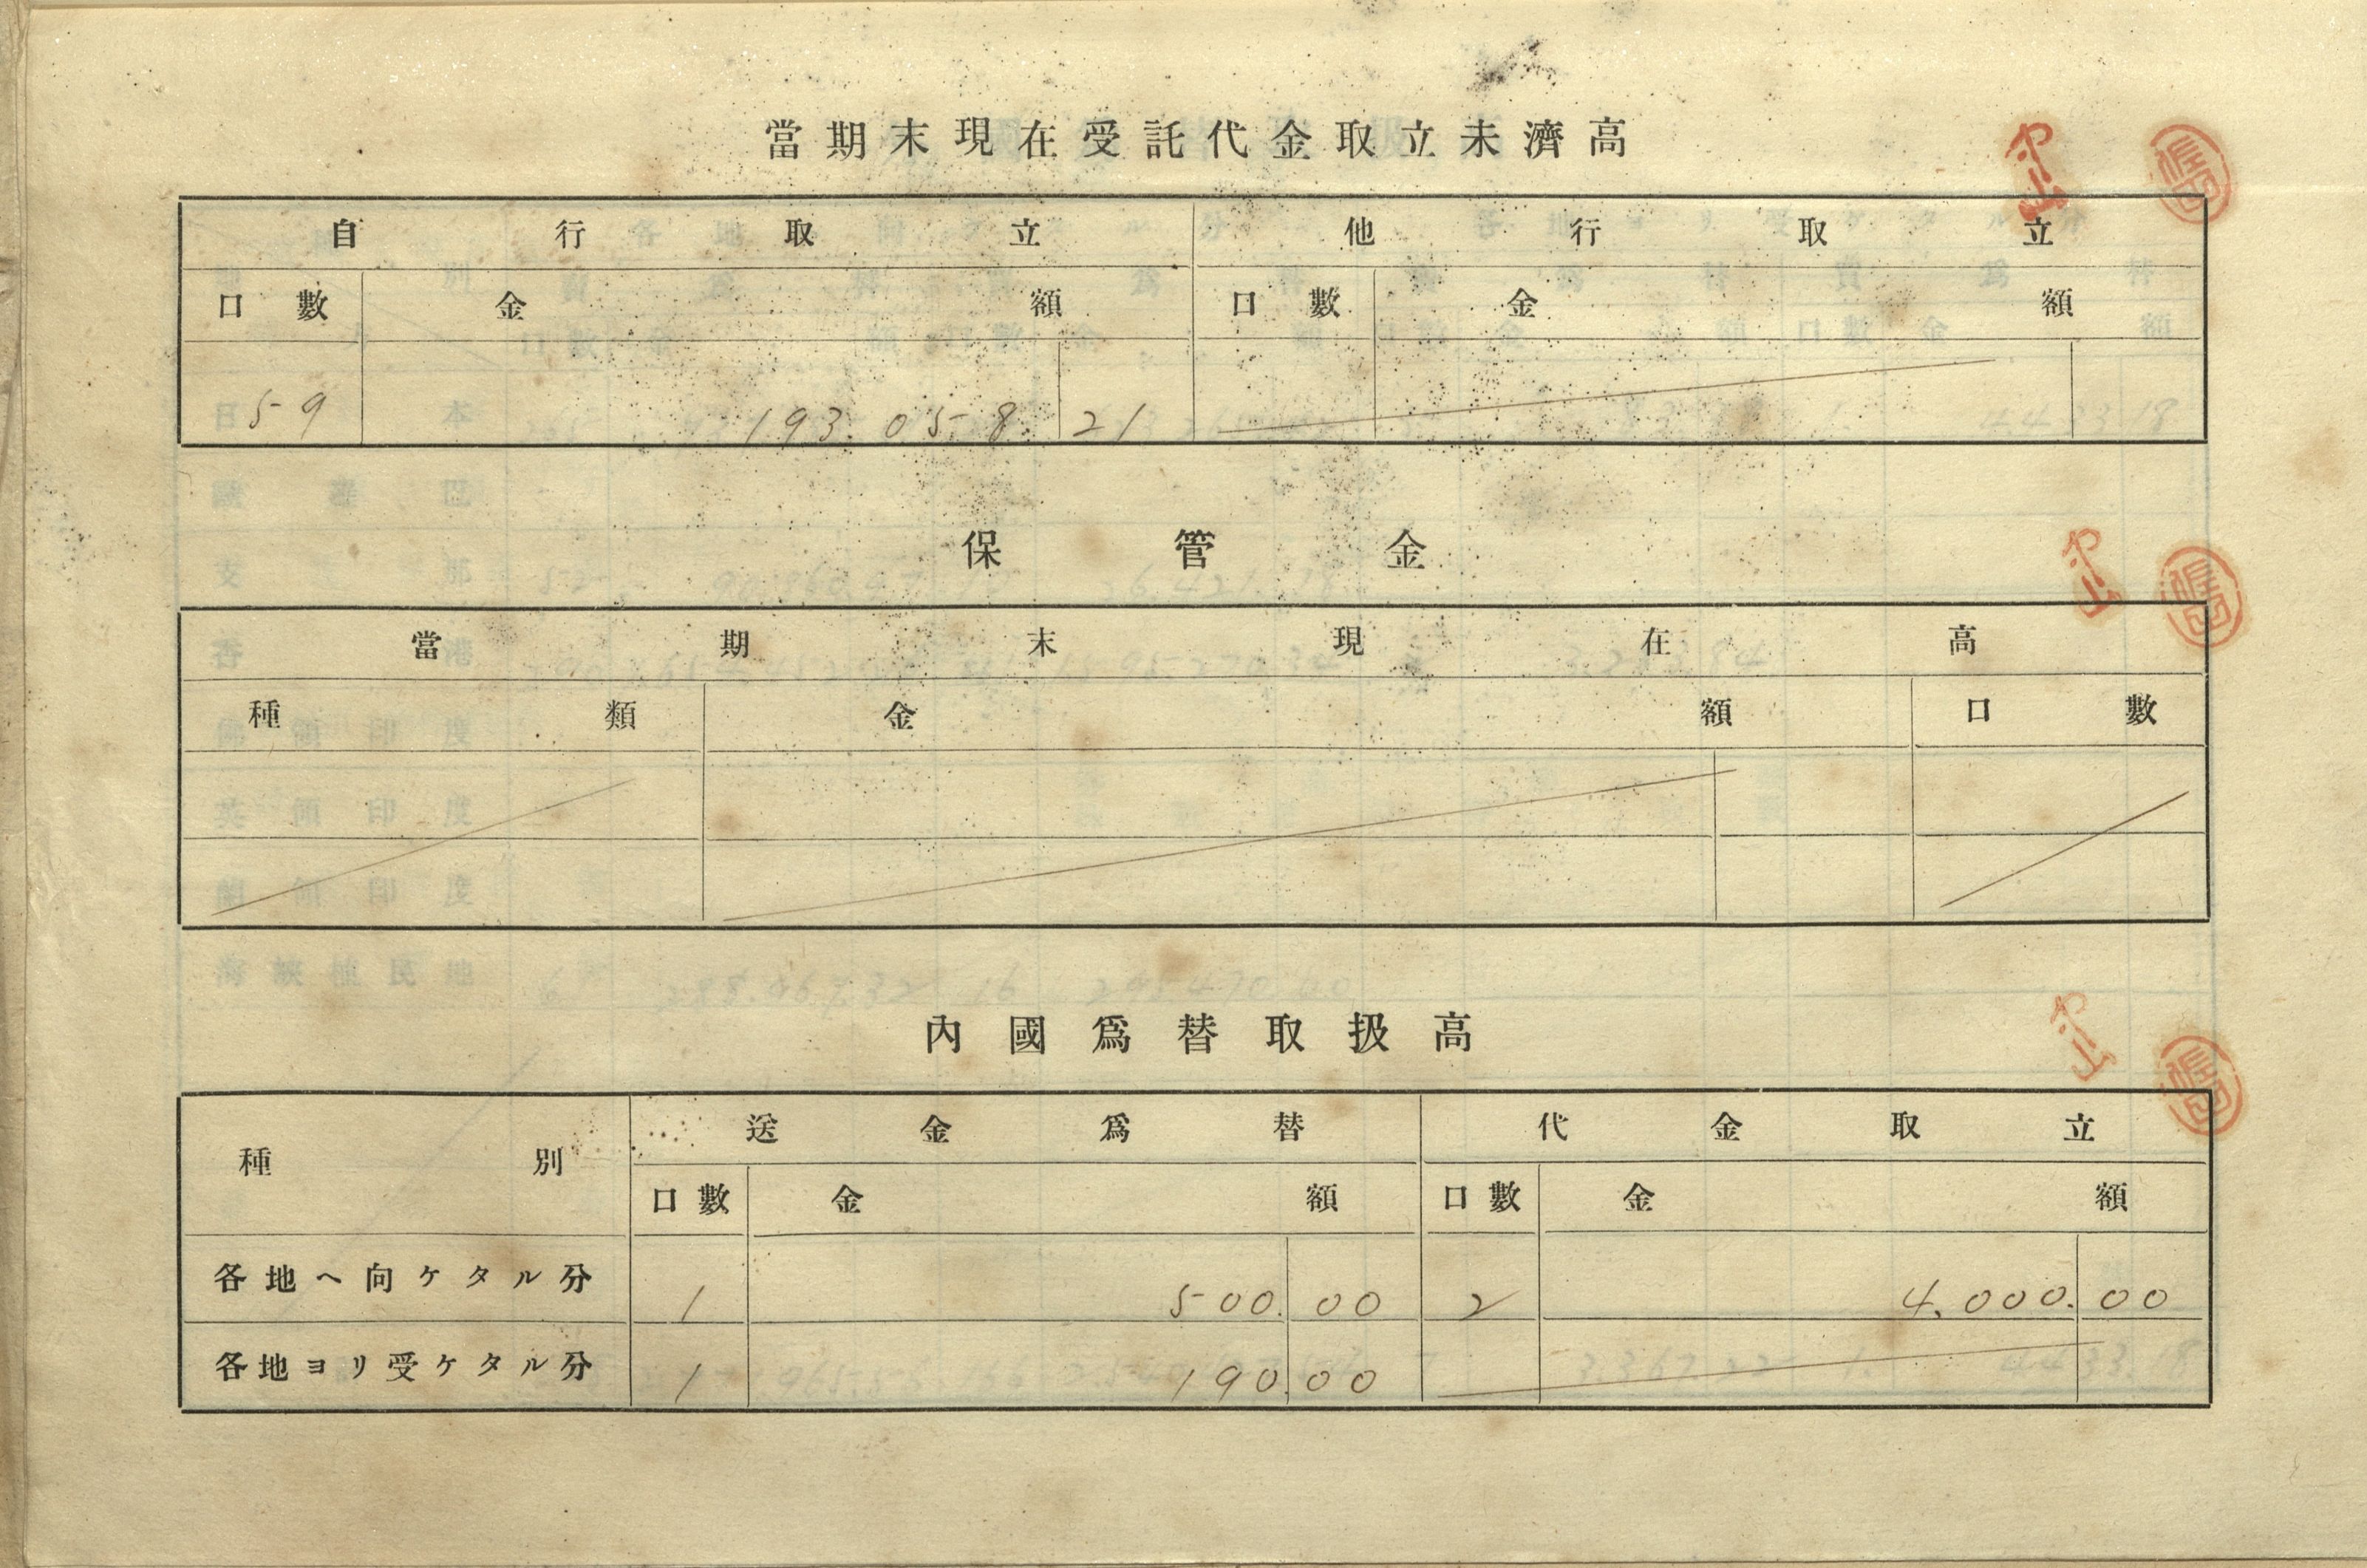 當期末現在受託代金取立未濟高
自行取立 他行取立
口數 金額 口數 金額
59 193.058.21
保管金
當期末現在高
種類 金額 口數
內國爲替取扱高
種別 送金爲替 代金取立
口數 金額 口數 金額
各地ヘ向ケタル分 1 500.00 2 4.000.00
各地ヨリ受ケタル分 1 190.00